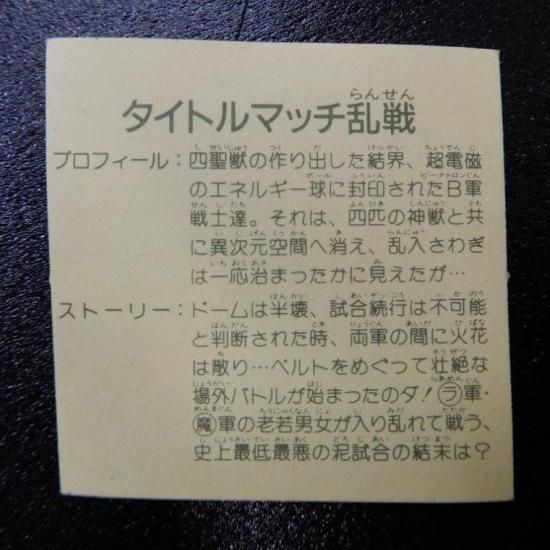 タイトルマッチ乱戦
プロフィール：四聖獣の作り出した結界、超電磁
のエネルギー球に封印されたB軍
戦士達。それは、四匹の神獣と共
に異次元空間へ消え、乱入さわぎ
は一応治まったかに見えたが…
ストーリー：ドームは半壊、試合続行は不可能
と判断された時、両軍の間に火花
は散り…ベルトをめぐって壮絶な
場外バトルが始まったのダ！ラ軍・
魔軍の老若男女が入り乱れて戦う、
史上最低最悪の泥試合の結末は？